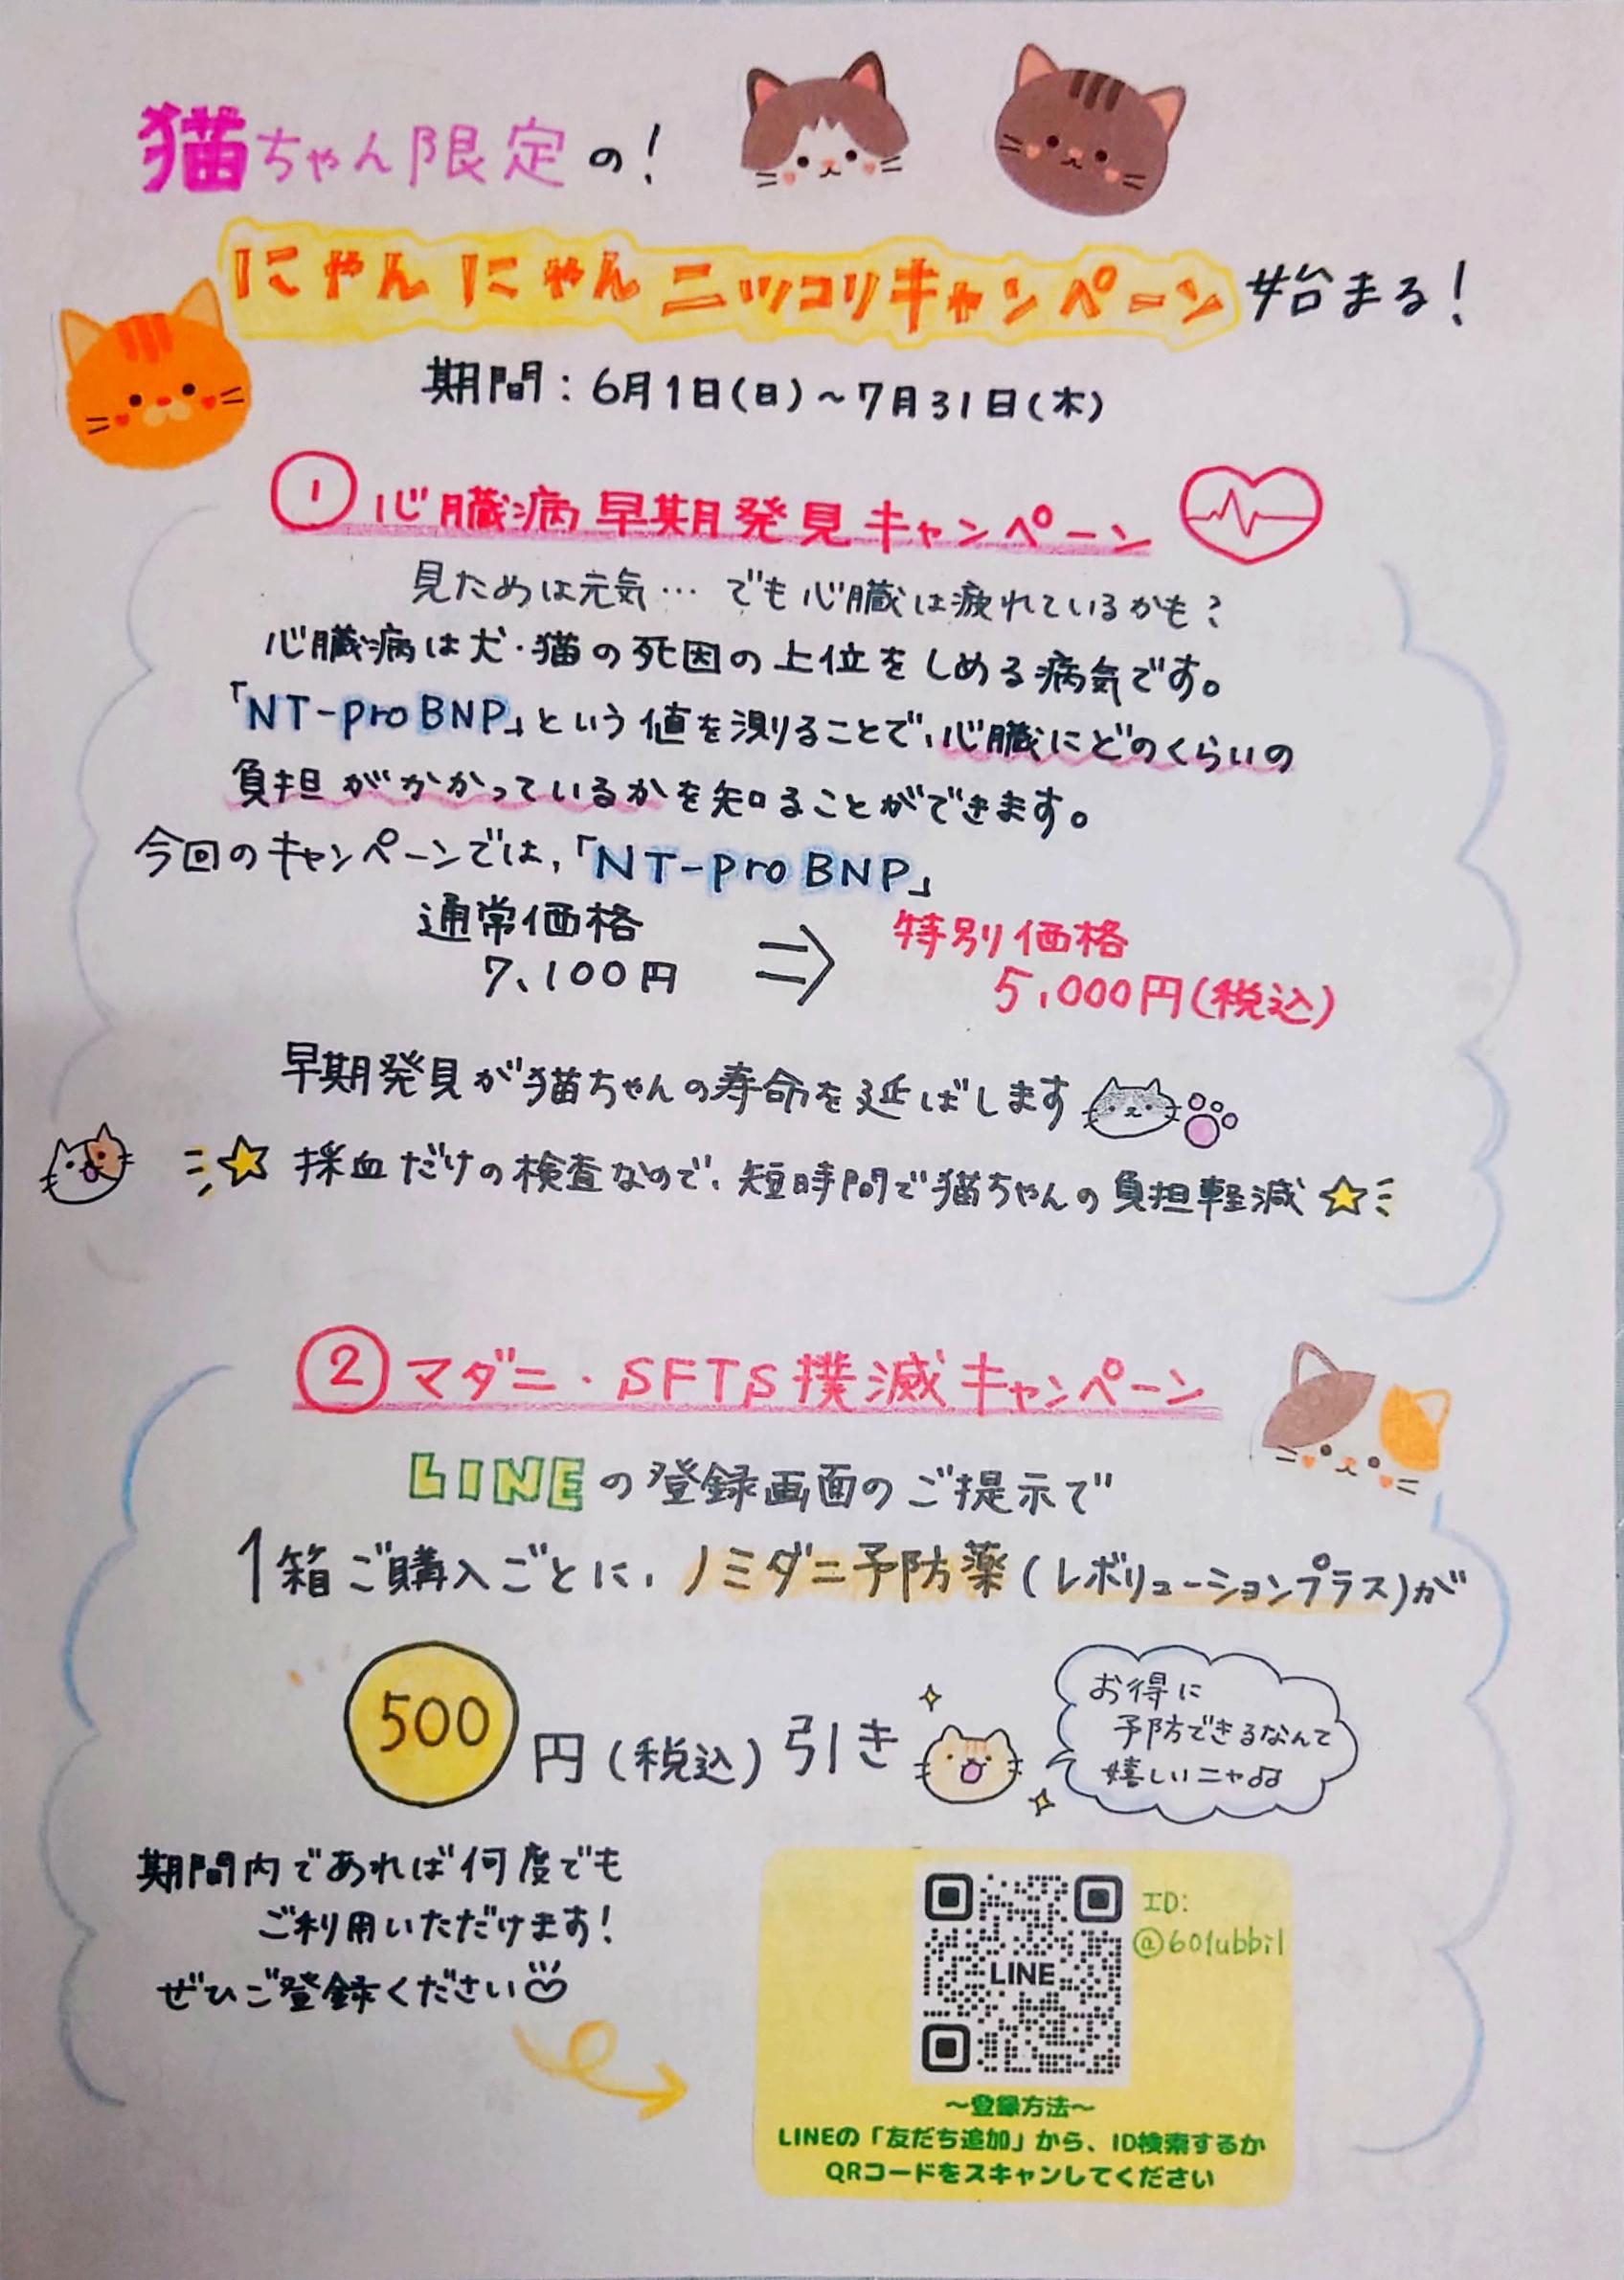 猫ちゃん限定の!
にゃんにゃんニッコリキャンペーン始まる!
期間:6月1日(日)~7月31日(木)
① 心臓病早期発見キャンペーン
見ためは元気… でも心臓は疲れているかも?
心臓病は犬・猫の死因の上位をしめる病気です。
「NT-proBNP」という値を測ることで、心臓にどのくらいの
負担がかかっているかを知ることができます。
今回のキャンペーンでは、「NT-proBNP」
通常価格 ⇒ 特別価格
7,100円 5,000円(税込)
早期発見が猫ちゃんの寿命を延ばします
☆ 採血だけの検査なので、短時間で猫ちゃんの負担軽減 ☆
② マダニ・SFTS撲滅キャンペーン
LINEの登録画面のご提示で
1箱ご購入ごとに、ノミダニ予防薬(レボリューションプラス)が
500円(税込)引き
お得に
予防できるなんて
嬉しいニャ♫
期間内であれば何度でも
ご利用いただけます!
ぜひご登録ください
LINE
ID:
@601ubbil
~登録方法~
LINEの「友だち追加」から、ID検索するか
QRコードをスキャンしてください